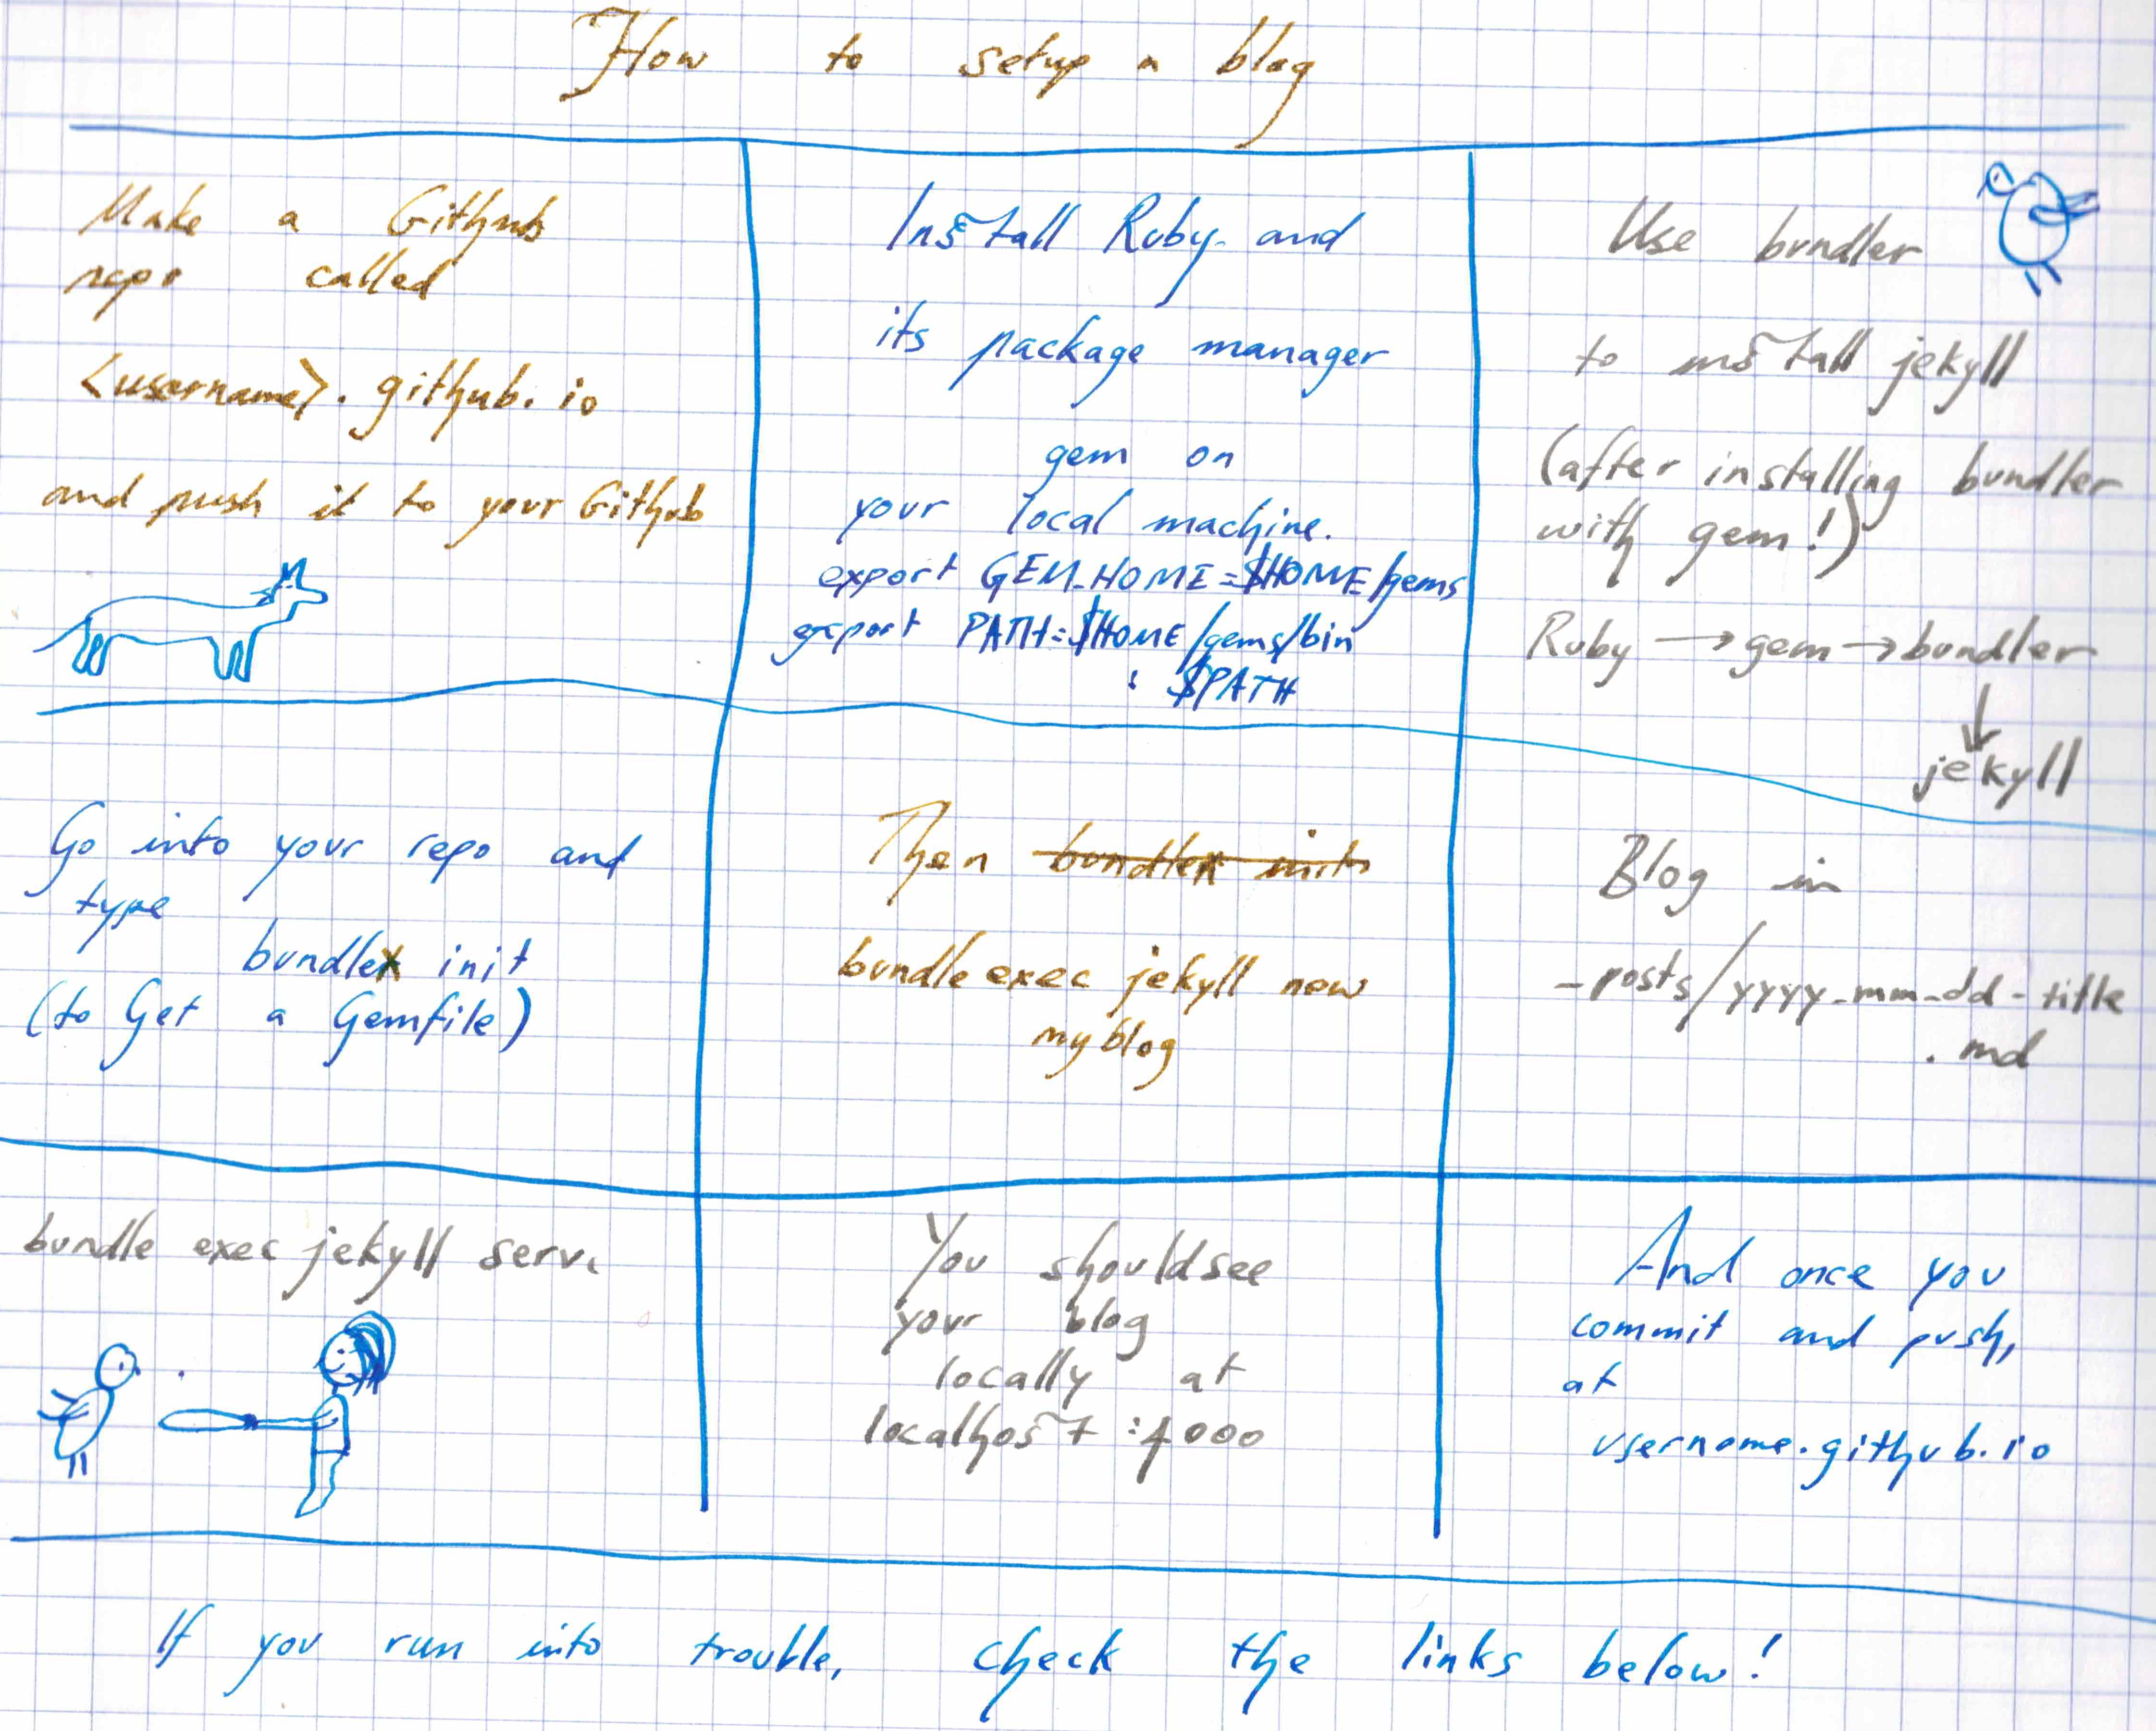 How to setup a blog
Make a Github
repo called
<username>.github.io
and push it to your Github
Install Ruby and
its package manager
gem on
your local machine.
export GEM_HOME=$HOME/gems
export PATH=$HOME/gems/bin
: $PATH
Use bundler
to install jekyll
(after installing bundler
with gem!)
Ruby → gem → bundler
↓
jekyll
Go into your repo and
type
bundle init
(to Get a Gemfile)
Then bundle init
bundle exec jekyll new
myblog
Blog in
_posts/yyyy-mm-dd-title
.md
bundle exec jekyll serve
You should see
your blog
locally at
localhost:4000
And once you
commit and push,
at
username.github.io
If you run into trouble, check the links below!